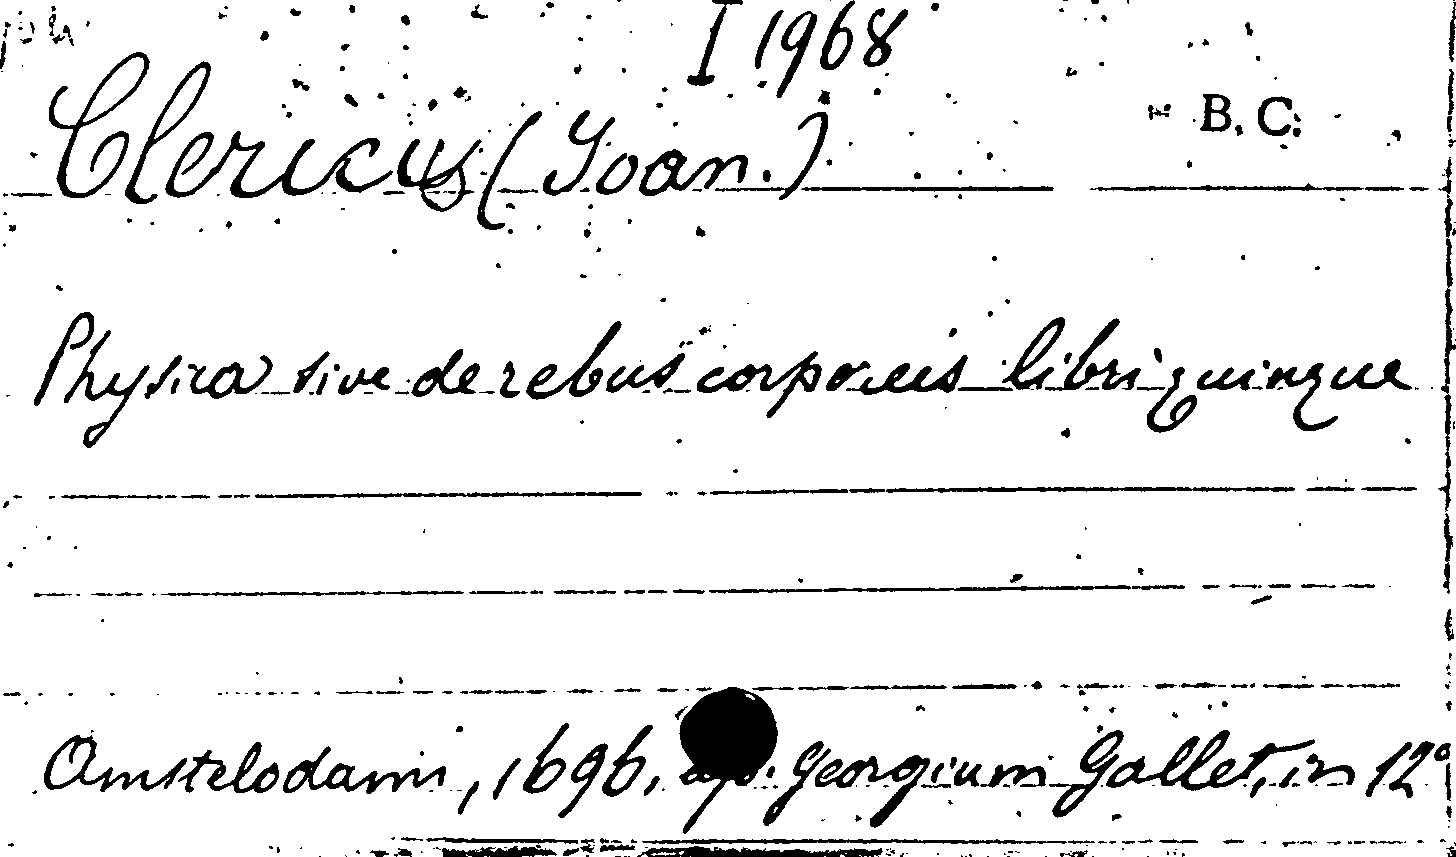 I 1968
B. C.
Clericus (Joan.)
Physica sive de rebus corporeis libri quinque
Amstelodami, 1696, ap. Georgium Gallet, in 12°